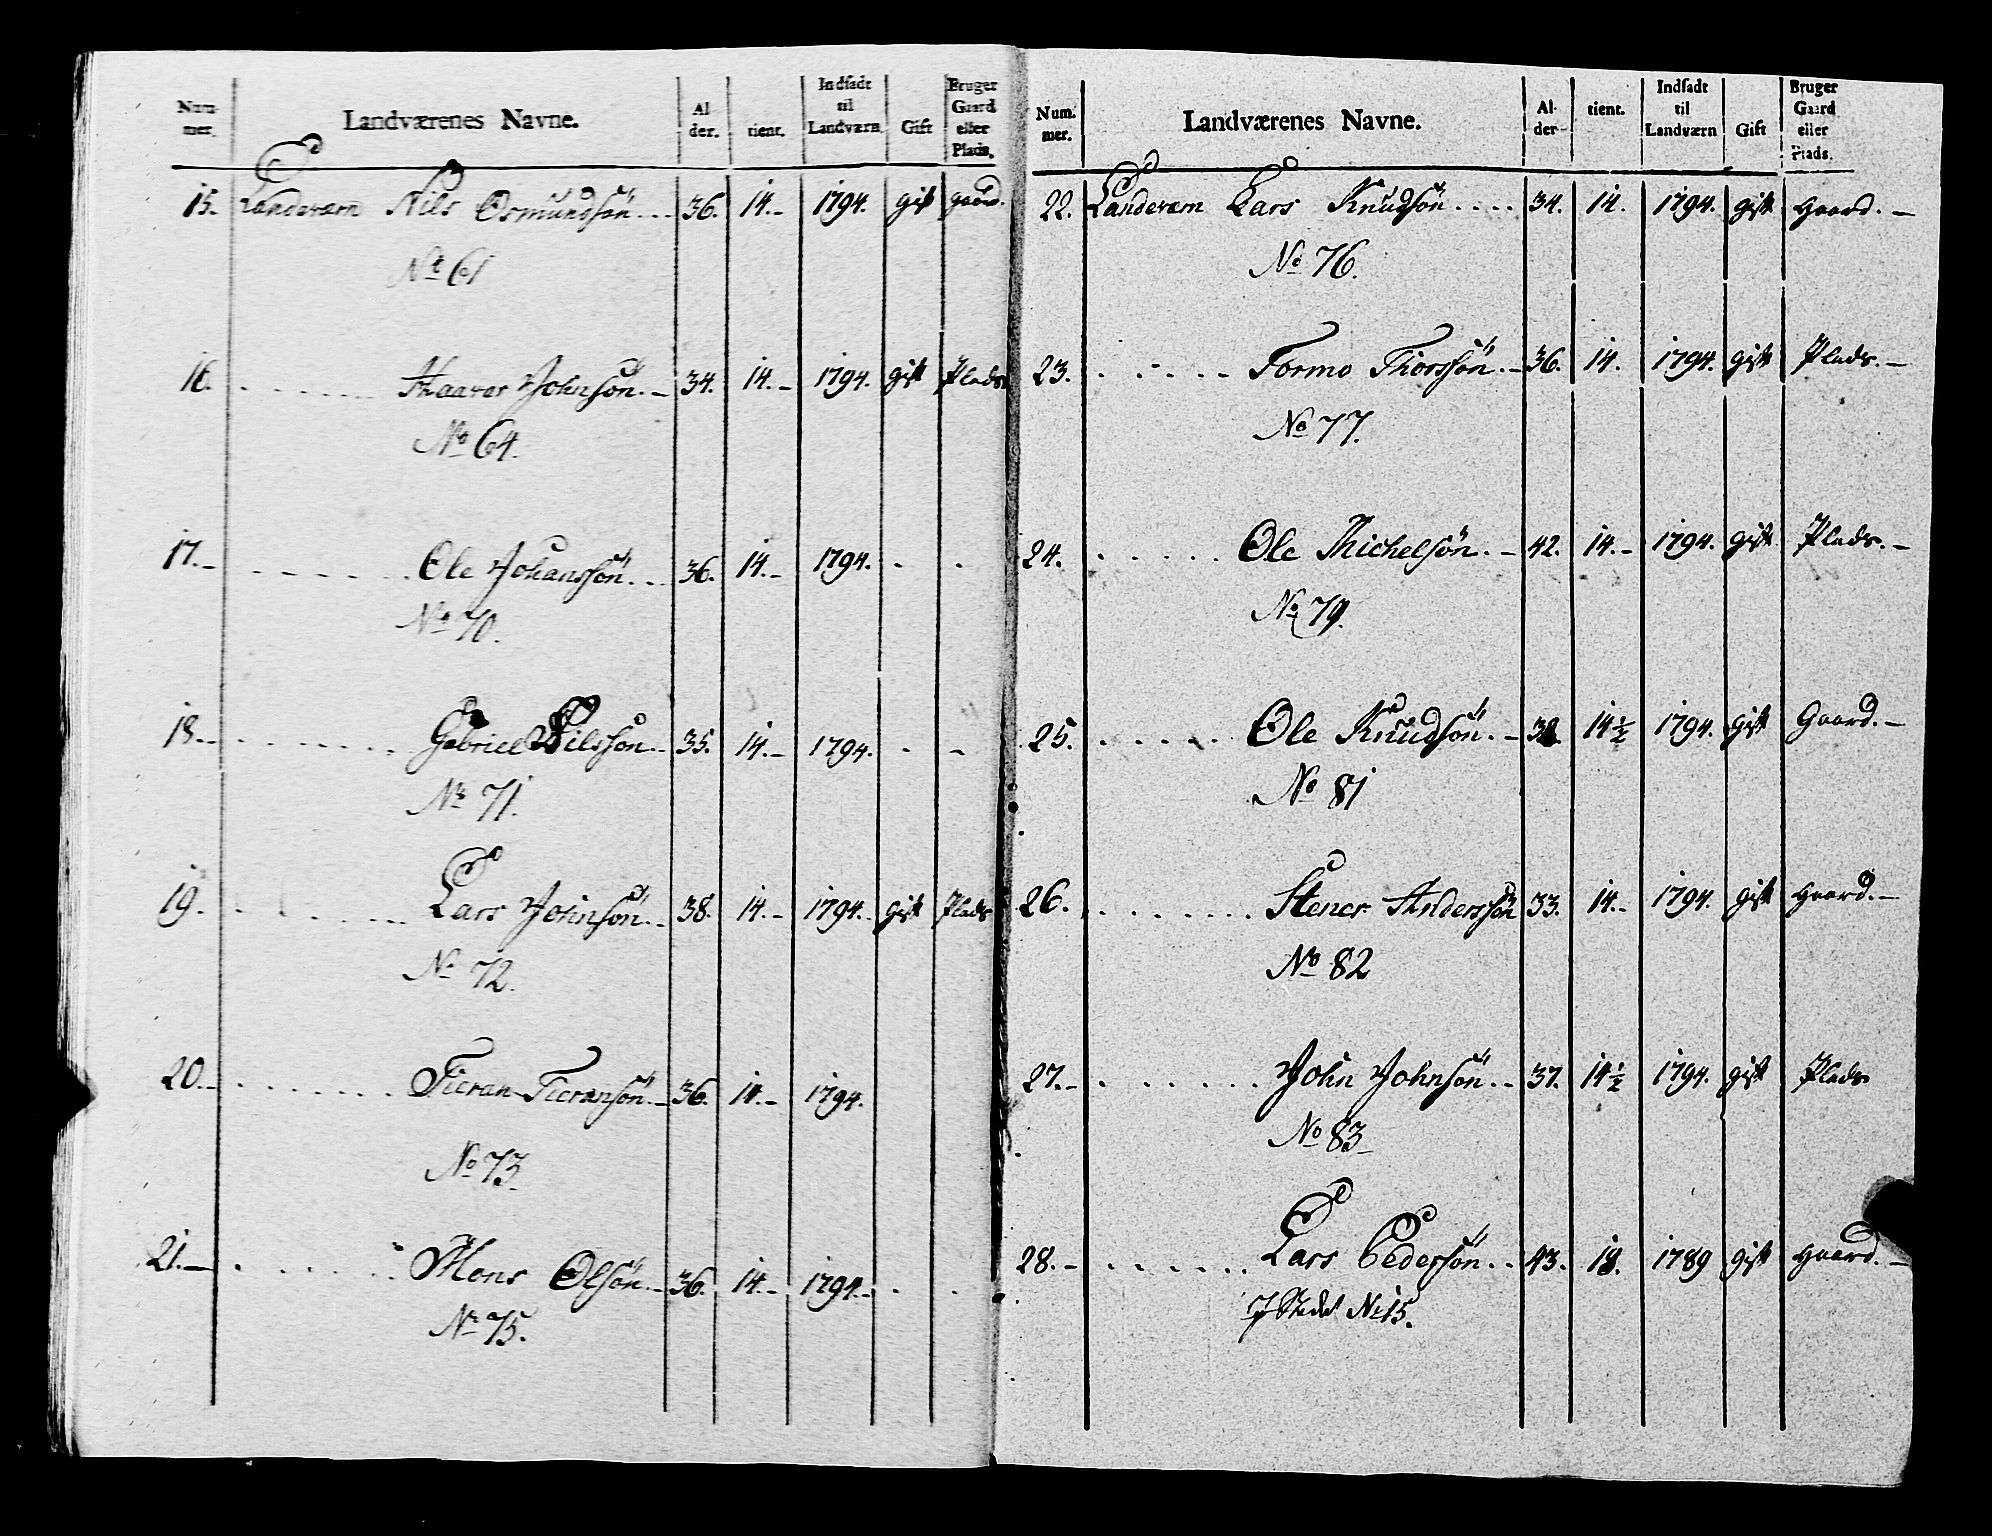 Num- mer. Landværenes Navne. Al der. tient. Indsadt til Landværn Gift Bruger Gaard eller Plads.
15. Landværn Nils Osmundsön... 36. 14.- 1794. gift gaard.
No 61
16. Haaver Johnsön.- 34. 14.- 1794. gift Plads
No 64.
17.- Ole Johanssön... 36. 14.- 1794. - -
No 70.
18.- Gabriel Nilssön.. 35. 14.- 1794. - -
No 71.
19. Lars Johnsön.. 38. 14.- 1794.- gift Plads
No 72.
20.- Tieran Tieransön.- 36. 14.- 1794.
No 73.
21.- Mons Olsön.- 36. 14.- 1794.-
No 75.
Num. mer. Landværenes Navne. Al- der tient. Indsadt til Landværn Gift Bruger Gaard eller Plads.
22. Landværn Lars Knudsön.... 34. 14. 1794. gift Gaard.-
No 76.
23. Tormo Thorssön.- 36. 14. 1794. gift Plads.-
No 77.
24. Ole Michelsön.- 42. 14.- 1794. gift Plads.-
No 79.
25. Ole Knudsön.- 14½ 1794. gift Gaard.-
No 81
26. Stener Anderssön 33. 14.- 1794. gift Gaard.-
No 82
27.- John Johnsön.. 37. 14½ 1794. gift Plads
No 83
28.- Lars Pedersön.. 43. 18. 1789 gift Gaard.-
J Stedet No 15.